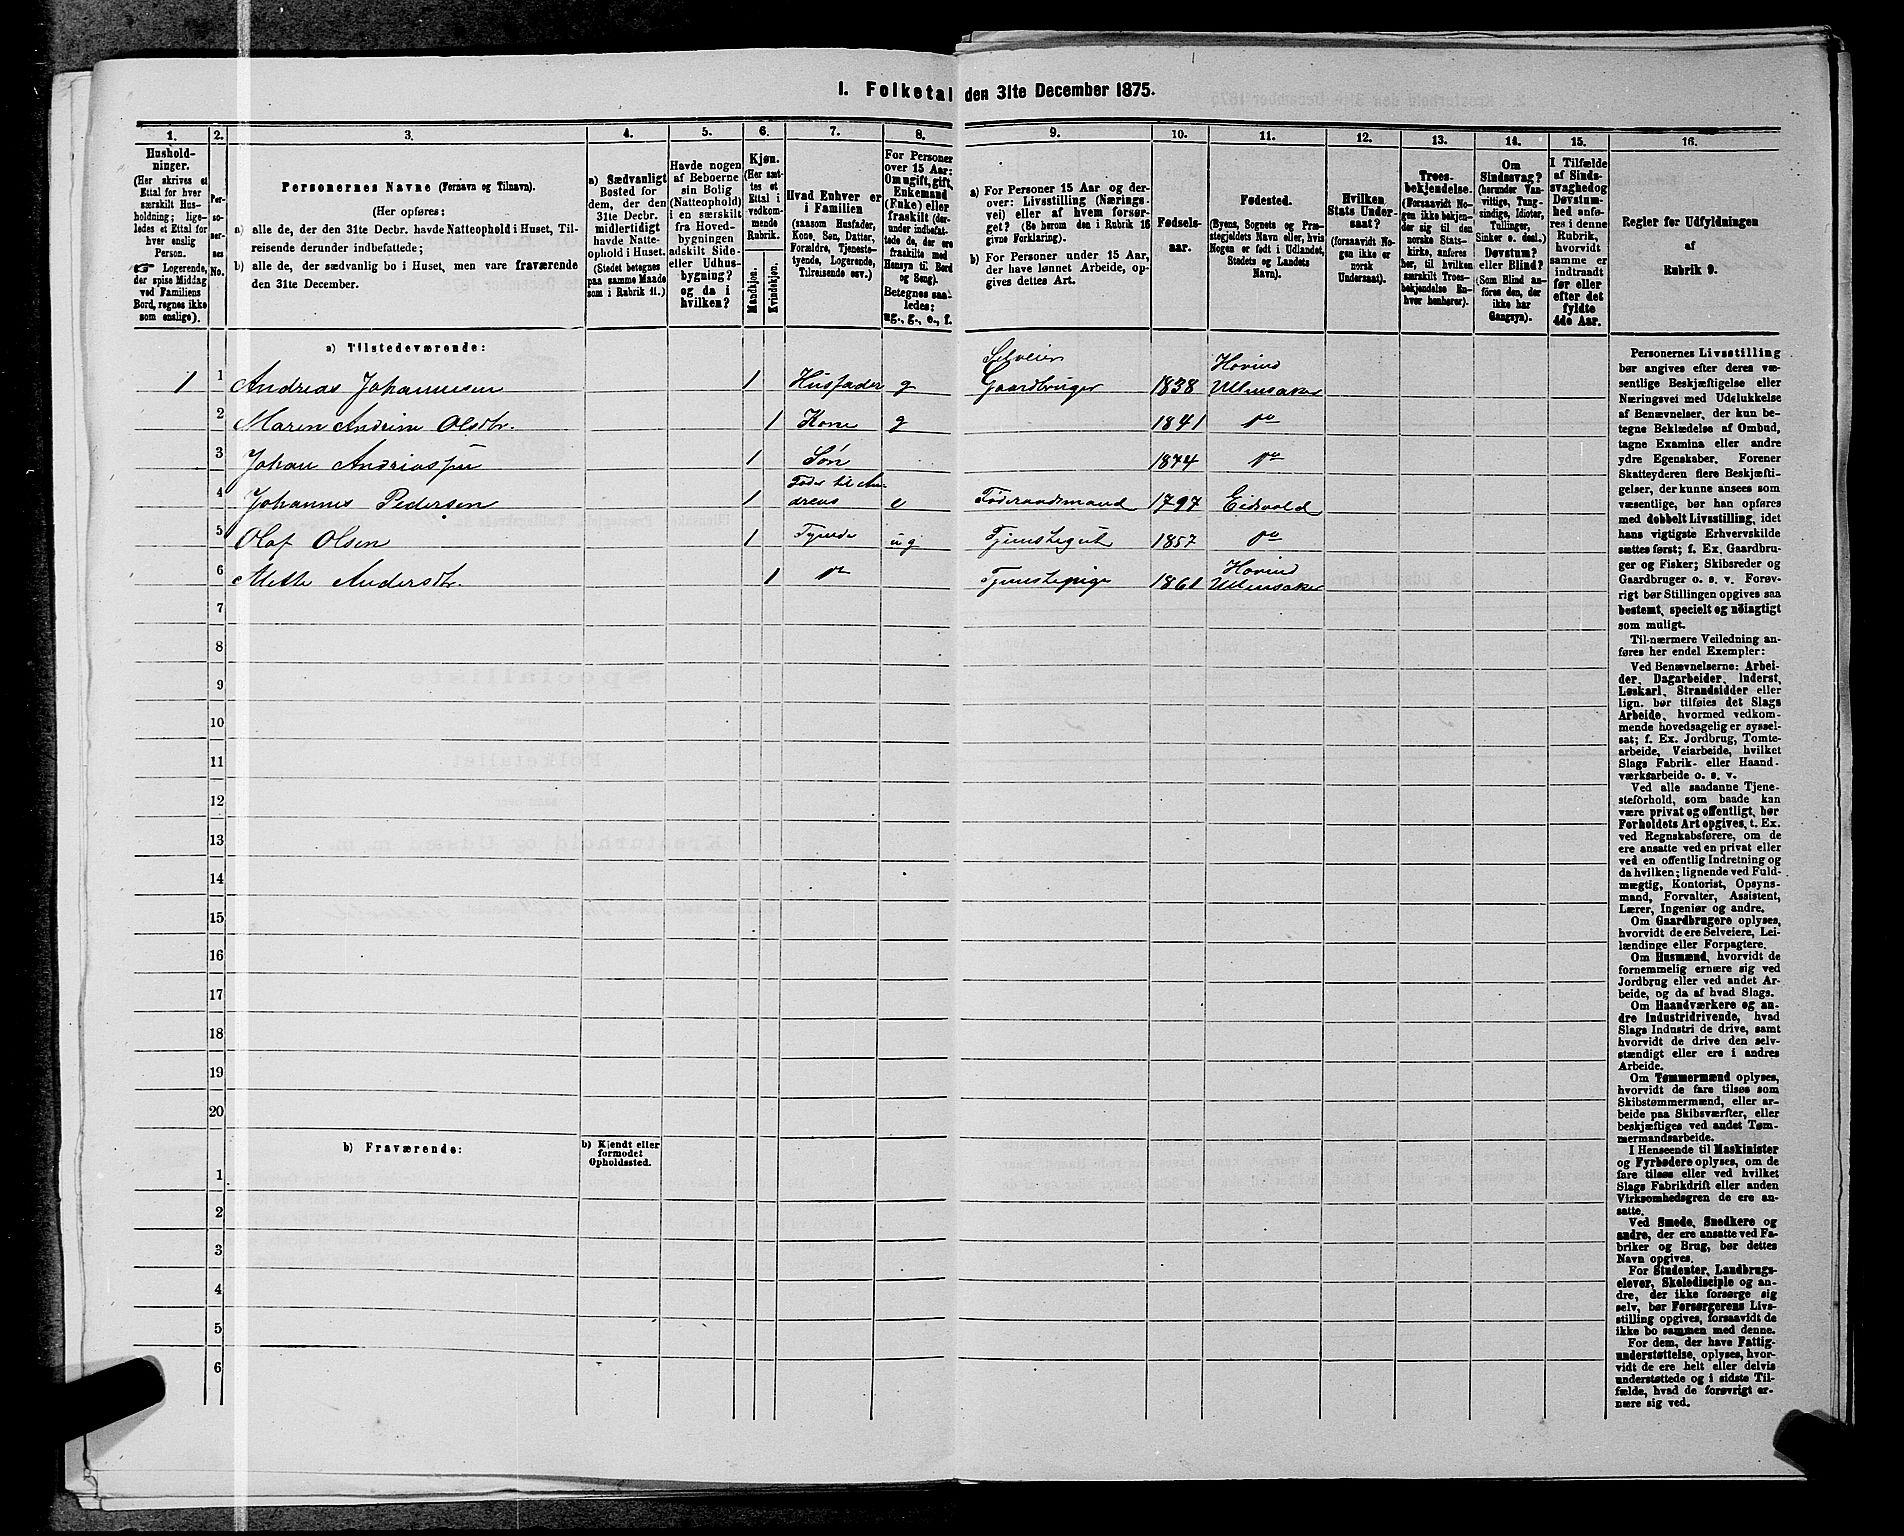 I. Folketal den 31te December 1875.
1. 2. 3. 4. 5. 6. 7. 8. 9. 10. 11. 12. 13. 14. 15. 16.
Husholdninger.
(Her skrives et Ettal for hver særskilt Husholdning; ligeledes et Ettal for hver enslig Person.
☞ Logerende, der spise Middag ved Familiens Bord, regnes ikke som enslige).
Personernes No.
Personernes Navne (Fornavn og Tilnavn).
(Her opføres:
a) alle de, der den 31te Decbr. havde Natteophold i Huset, Tilreisende derunder indbefattede;
b) alle de, der sædvanlig bo i Huset, men vare fraværende den 31te December.
a) Sædvanligt Bosted for dem, der den 31te Decbr. midlertidigt havde Natteophold i Huset.
(Stedet betegnes paa samme Maade som i Rubrik 11.)
Havde nogen af Beboerne sin Bolig (Natteophold) i en særskilt fra Hovedbygningen adskilt Side- eller Udhusbygning? og da i hvilken?
Kjøn.
(Her sættes et Ettal i vedkommende Rubrik.
Mandkjøn.
Kvindekjøn.
Hvad Enhver er i Familien
(saasom Husfader, Kone, Søn, Datter, Forældre, Tjenestetyende, Logerende, Tilreisende osv.)
For Personer over 15 Aar: Om ugift, gift, Enkemand (Enke) eller fraskilt (derunder indbefattede de, der ere fraskilte med Hensyn til Bord og Seng).
Betegnes saaledes: ug., g., e., f.
a) For Personer 15 Aar og derover: Livsstilling (Næringsvei) eller af hvem forsørget? (Se herom den i Rubrik 16 givne Forklaring).
b) For Personer under 15 Aar, der have lønnet Arbeide, opgives dettes Art.
Fødselsaar.
Fødested.
(Byens, Sognets og Præstegjeldets Navn eller, hvis Nogen er født i Udlandet, Stedets og Landets Navn).
Hvilken Stats Undersaat?
(forsaavidt Nogen ikke er norsk Undersaat).
Troesbekjendelse.
(Forsaavidt Nogen ikke bekjender sig til den norske Statskirke, anføres her, til hvilken særskilt Troesbekjendelse Enhver henhører).
Om Sindssvag? (herunder Vanvittige, Tungsindige, Idioter, Tullinger, Sinker o. desl.) Døvstum? eller Blind? (Som Blind anføres den, der ikke har Gangsyn).
I Tilfælde af Sindssvaghed og Døvstumhed anføres i denne Rubrik, hvorvidt samme er indtraadt før eller efter det fyldte 4de Aar.
Regler for Udfyldningen af Rubrik 9.
a) Tilstedeværende:
1 1 Andreas Johannesen 1 Husfader g Selveier Gaardbruger 1838 Hovind Ullensaker
2 Maren Andrine Olsdtr. 1 Kone g 1841 do
3 Johan Andreassen 1 Søn 1874 do
4 Johannes Pedersen 1 Fader til Andreas e Føderaadsmand 1797 Eidsvold
5 Olaf Olsen 1 Tyende ug Tjenstegut 1857 do
6 Mette Andersdtr. 1 do Tjenstepige 1861 Hovind Ullensaker
7
8
9
10
11
12
13
14
15
16
17
18
19
20
b) Fraværende:
b) Kjendt eller formodet Opholdssted.
1
2
3
4
5
6
Personernes Livsstilling
bør angives efter deres væ-
sentlige Beskjæftigelse eller
Næringsvei med Udelukkelse
af Benævnelser, der kun be-
tegne Beklædelse af Ombud,
tagne Examina eller andre
ydre Egenskaber. Forener
Skatteyderen flere Beskjæfti-
gelser, der kunne ansees som
væsentlige, bør han opføres
med dobbelt Livsstilling, idet
hans vigtigste Erhvervskilde
sættes først; f. Ex. Gaardbru-
ger og Fisker; Skibsreder og
Gaardbruger o. s. v. Forøv-
rigt bør Stillingen opgives saa
bestemt, specielt og nøiagtigt
som muligt.
Til nærmere Veiledning an-
føres her endel Exempler:
Ved Benævnelserne: Arbei-
der, Dagarbeider, Inderst,
Løskarl, Strandsidder eller
lign. bør tilføies det Slags
Arbeide, hvormed vedkom-
mende hovedsagelig er syssel-
sat; f. Ex. Jordbrug, Tomte-
arbeide, Veiarbeide, hvilket
Slags Fabrik- eller Haand-
værksarbeide o. s. v.
Ved alle saadanne Tjene-
steforhold, som baade kan
være privat og offentligt, bør
Forholdets Art opgives, t. Ex.
ved Regnskabsførere, om de
ere ansatte ved en privat eller
ved en offentlig Indretning og
da hvilken; lignende ved Fuld-
mægtig, Kontorist, Opsyns-
mand, Forvalter, Assistent,
Lærer, Ingeniør og andre.
Om Gaardbrugere oplyses,
hvorvidt de ere Selveiere, Lei-
lændinge eller Forpagtere.
Om Husmænd, hvorvidt de
fornemmelig ernære sig ved
Jordbrug eller ved andet Ar-
beide, og da af hvad Slags.
Om Haandværkere og an-
dre Industridrivende, hvad
Slags Industri de drive, samt
hvorvidt de drive den selv-
stændigt eller ere i andres
Arbeide.
Om Tømmermænd oplyses,
hvorvidt de fare tilsøs som
Skibstømmermænd, eller ar-
beide paa Skibsværfter, eller
beskjæftiges ved andet Tøm-
mermandsarbeide.
I Henseende til Maskinister
og Fyrbødere oplyses, om de
fare tilsøs eller ved hvilket
Slags Fabrikdrift eller anden
Virksomhedsgren de ere an-
satte.
Ved Smede, Snedkere og
andre, der ere ansatte ved Fa-
briker og Brug, bør dettes
Navn opgives.
For Studenter, Landbrugs-
elever, Skoledisciple og an-
dre, der ikke forsørge sig
selv, bør Forsørgerens Livs-
stilling opgives, forsaavidt de
ikke bo sammen med denne.
For dem, der have Fattig-
understøttelse, oplyses, hvor-
vidt de ere helt eller delvis
understøttede og i sidste Til-
fælde, hvad de forøvrigt er-
nære sig ved.